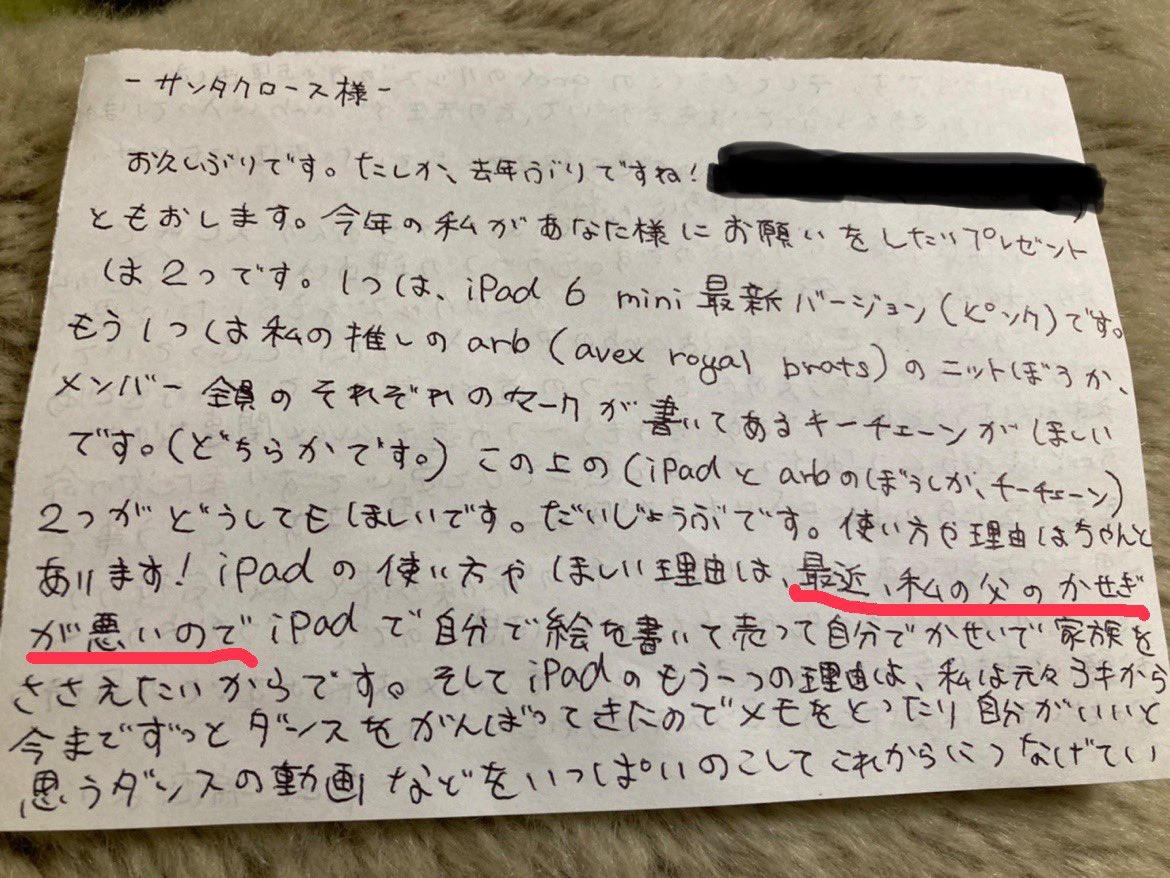 - サンタクロース様 -
お久しぶりです。たしか、去年ぶりですね!
ともおします。今年の私があなた様にお願いをしたいプレゼント
は2つです。1つは、iPad 6 mini 最新バージョン(ピンク)です。
もう1つは私の推しのarb(avex royal brats)のニットぼうか、
メンバー全員のそれぞれのマークが書いてあるキーチェーンがほしい
です。(どちらかです。)この上の(iPadとarbのぼうしか、チーチェーン)
2つがどうしてもほしいです。だいじょうぶです。使い方や理由はちゃんと
あります!iPadの使い方やほしい理由は、最近、私の父のかせぎ
が悪いのでiPadで自分で絵を書いて売って自分でかせいで家族を
ささえたいからです。そしてiPadのもう一つの理由は、私は元々3才から
今までずっとダンスをがんばってきたのでメモをとったり自分がいいと
思うダンスの動画などをいっぱいのこしてこれからにつなげてい